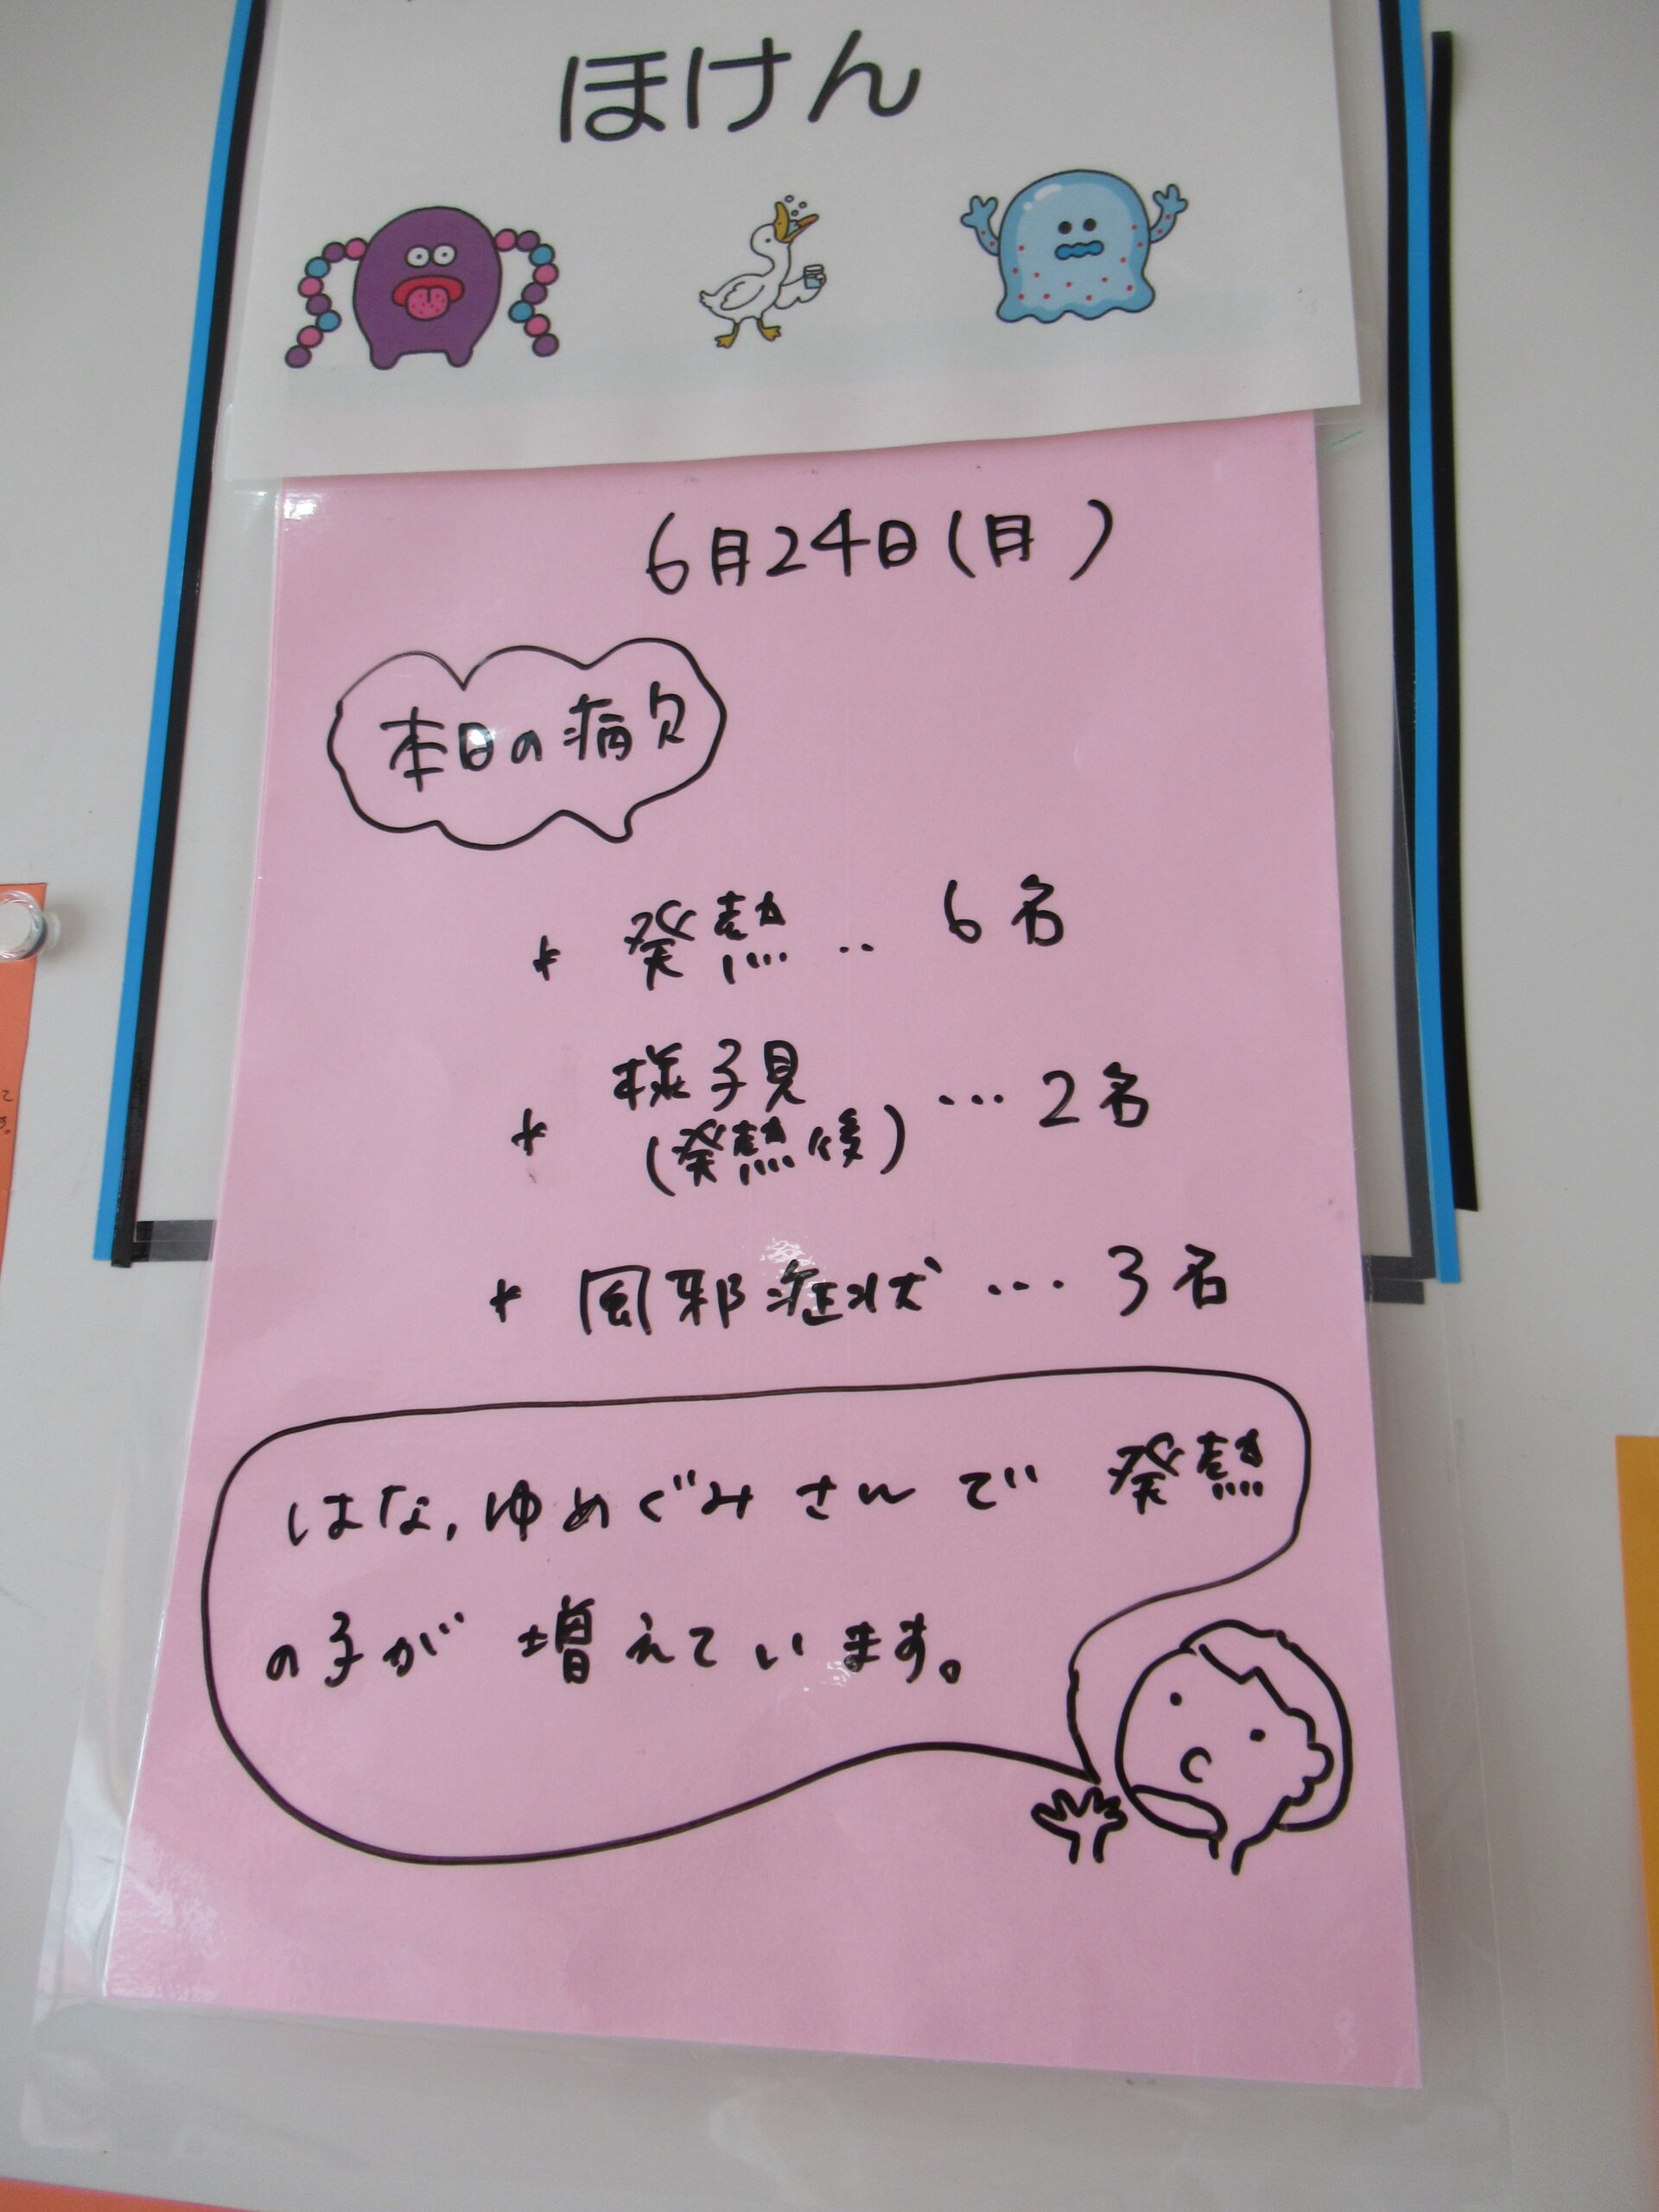 ほけん
6月24日(月)
本日の病欠
* 発熱‥6名
* 様子見…2名
(発熱後)
* 風邪症状…3名
はな,ゆめぐみさんで 発熱
の子が 増えています。